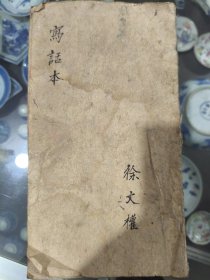 寫話本
徐文權